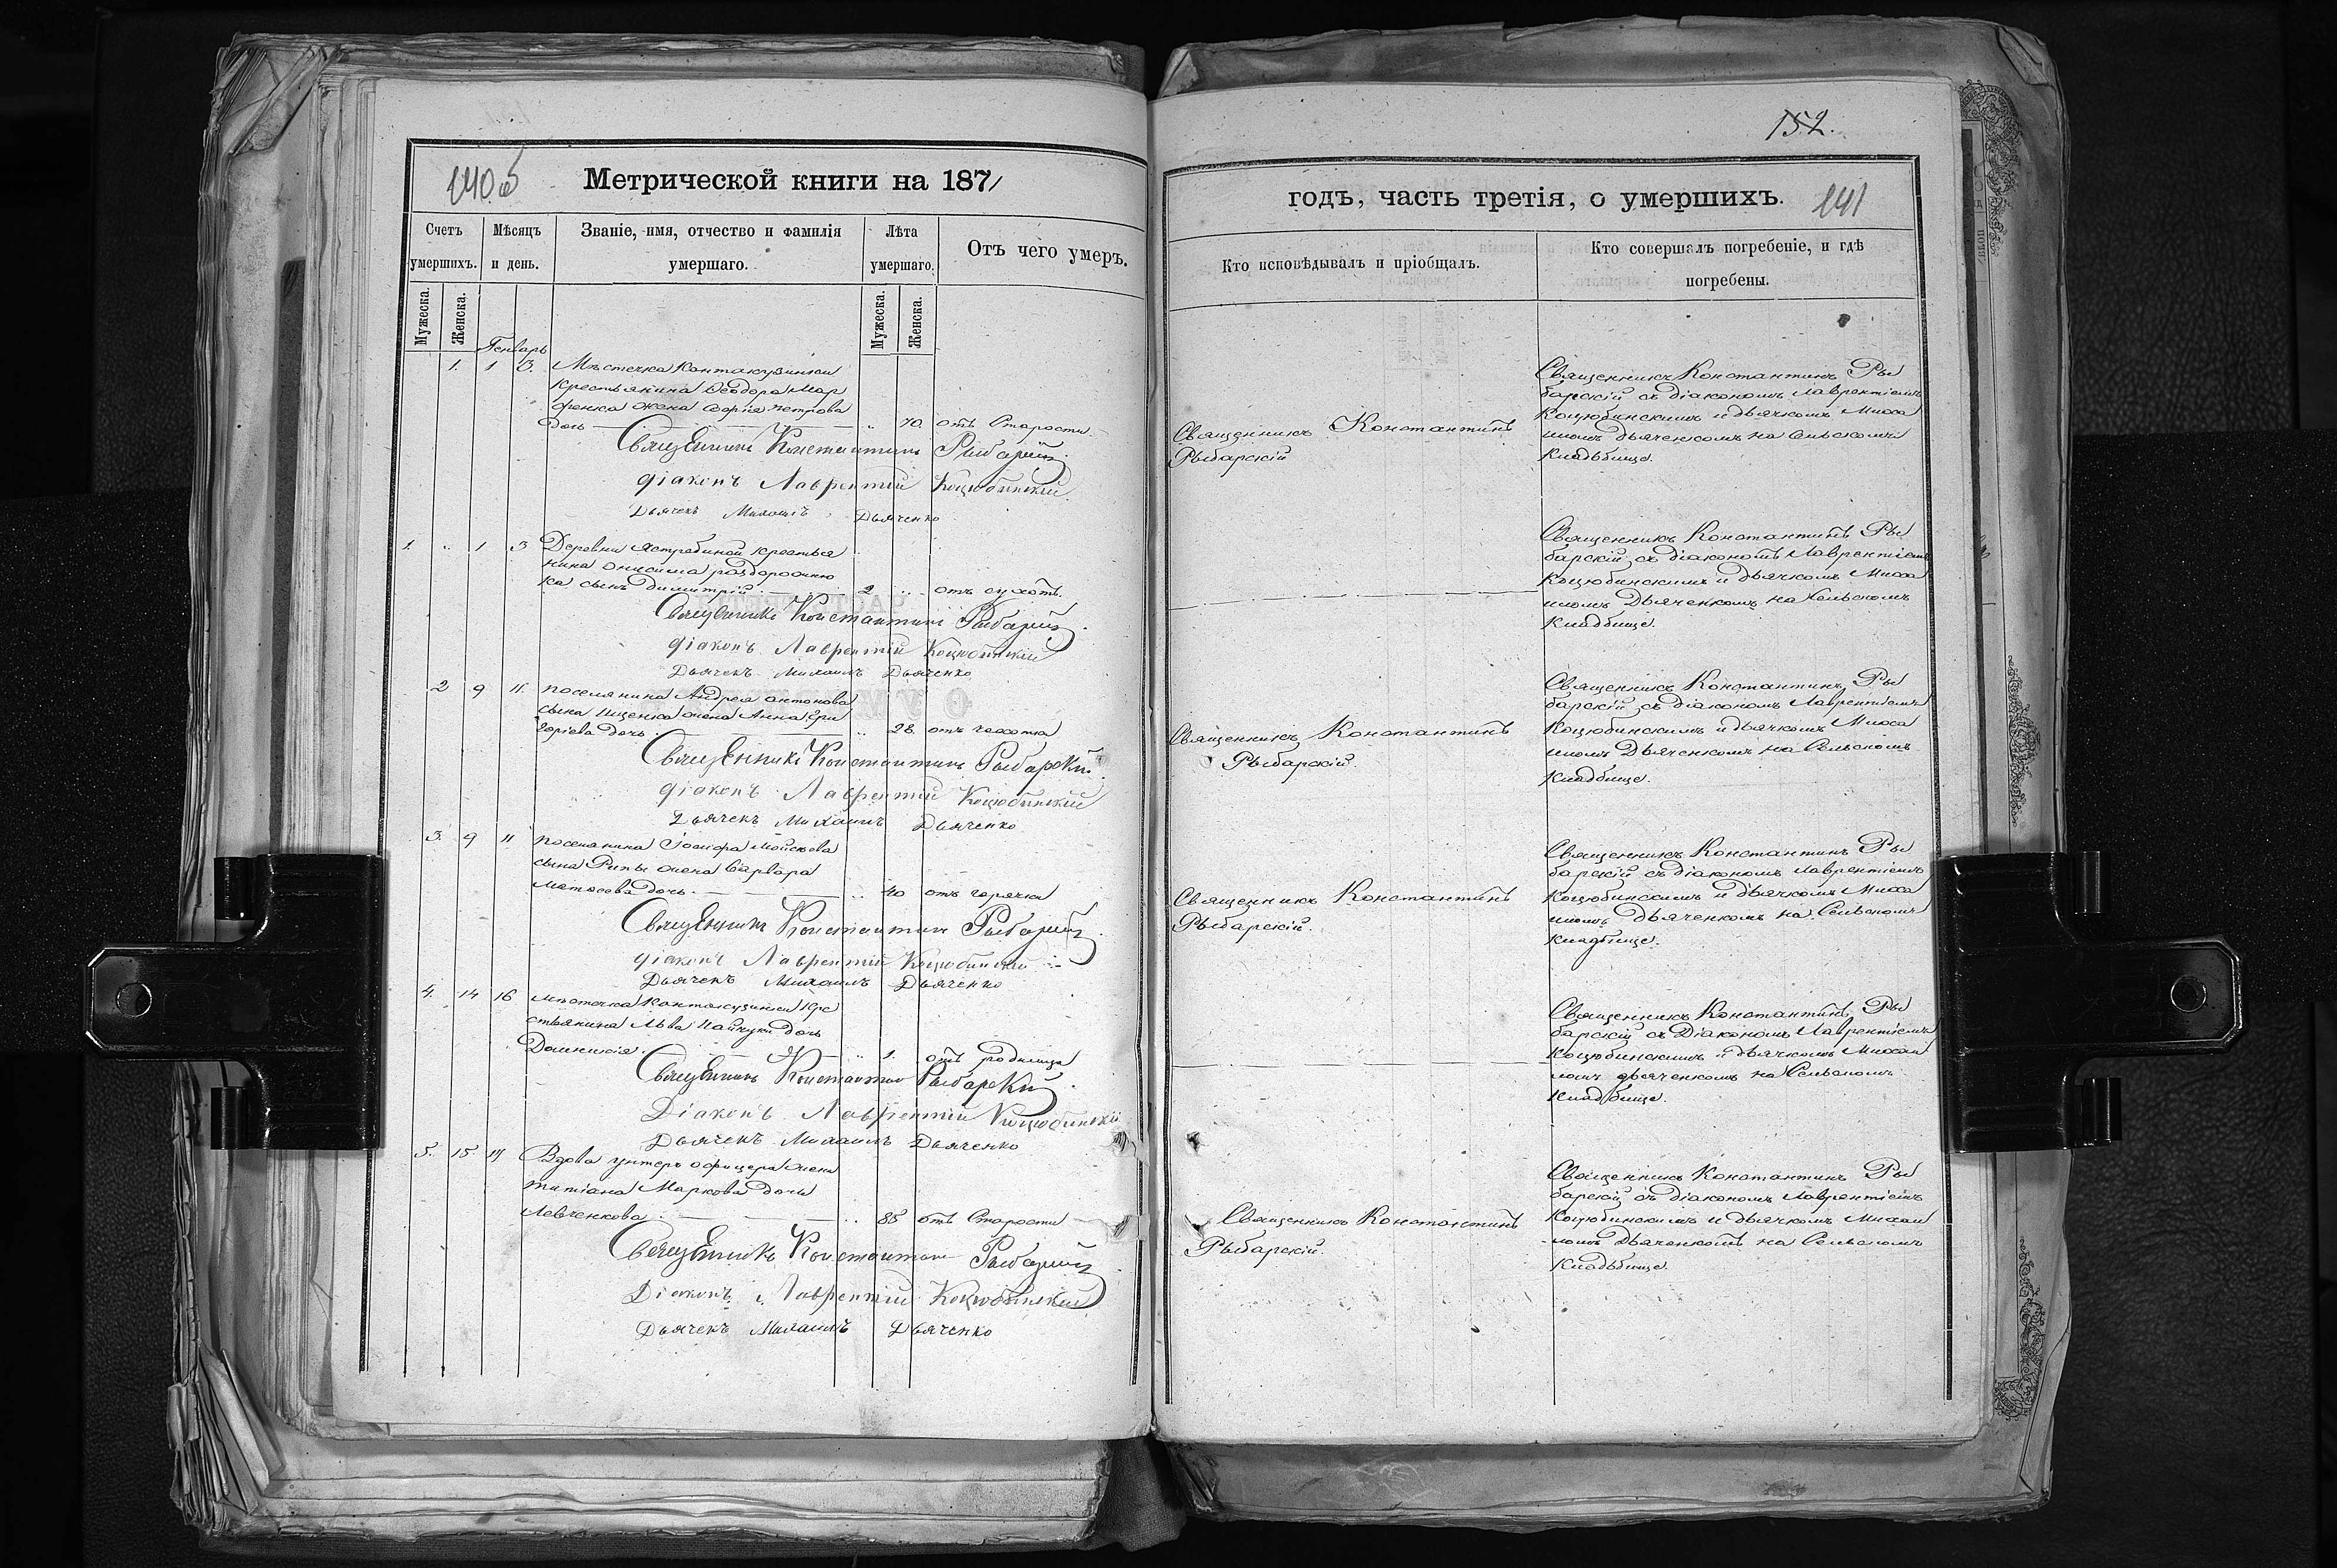 140 об
Метрической книги на 1871
Счетъ умершихъ.
Мѣсяцъ и день.
Званіе, имя, отчество и фамилія умершаго.
Лѣта умершаго.
Отъ чего умеръ.
Мужеска.
Женска.
Мужеска.
Женска.
Генварь
1. 1 3. Мѣстечка Кантакузинки
Крестьянина Ѳеодора Мар
ченка жена Софія Петрова
дочь " 70. отъ Старости
Священникъ Константинъ Рыбарскій
діаконъ Лаврентій Коцюбинскій
Дьячекъ Михаилъ Дьяченко
1. " 1 3 Деревни Ястребиной крестья
нина Онисима
ка сынъ Димитрій 2 " отъ сухотъ
Священникъ Константинъ Рыбарскій
діаконъ Лаврентій Коцюбинскій
Дьячекъ Михаилъ Дьяченко
2 9 11. поселянина Андрея Антонова
сына Ищенка жена Анна Гри
горіева дочь " 28. отъ
Священникъ Константинъ Рыбарскій
діаконъ Лаврентій Коцюбинскій
Дьячекъ Михаилъ Дьяченко
3. 9 11 поселянина Іосифа Мойсѣева
сына Рипы жена Варвара
дочь " 40 отъ горячки
Священникъ Константинъ Рыбарскій
діаконъ Лаврентій Коцюбинскій
Дьячекъ Михаилъ Дьяченко
4. 14 16 мѣстечка Кантакузинки Кре
стьянина Льва дочь
Домникія " 1. отъ родимца
Священникъ Константинъ Рыбарскій
Діаконъ Лаврентій Коцюбинскій
Дьячекъ Михаилъ Дьяченко
5. 15. 17 Вдова унтеръ офицера жена
Татіана Маркова дочь
Левченкова " 85 отъ Старости
Священникъ Константинъ Рыбарскій
Діаконъ Лаврентій Коцюбинскій
Дьячекъ Михаилъ Дьяченко
152.
годъ, часть третія, о умершихъ.
141
Кто исповѣдывалъ и пріобщалъ.
Кто совершалъ погребеніе, и гдѣ
погребены.
Священникъ Константинъ
Рыбарскій
Священникъ Константинъ Ры
барскій съ діакономъ Лаврентіемъ
Коцюбинскимъ и дьячкомъ Миха
иломъ Дьяченкомъ на Сельскомъ
Кладбище.
Священникъ Константинъ Ры
барскій съ діакономъ Лаврентіемъ
Коцюбинскимъ и дьячкомъ Миха
иломъ Дьяченкомъ на Сельскомъ
Кладбище.
Священникъ Константинъ
Рыбарскій.
Священникъ Константинъ Ры
барскій съ діакономъ Лаврентіемъ
Коцюбинскимъ и дьячкомъ Миха
иломъ Дьяченкомъ на Сельскомъ
Кладбище.
Священникъ Константинъ
Рыбарскій.
Священникъ Константинъ Ры
барскій съ діакономъ Лаврентіемъ
Коцюбинскимъ и дьячкомъ Миха
иломъ Дьяченкомъ на Сельскомъ
Кладбище.
Священникъ Константинъ Ры
барскій съ Діакономъ Лаврентіемъ
Коцюбинскимъ и дьячкомъ Михаи
ломъ дьяченкомъ на Сельскомъ
Кладбище.
Священникъ Константинъ
Рыбарскій.
Священникъ Константинъ Ры
барскій съ діакономъ Лаврентіемъ
Коцюбинскимъ и дьячкомъ Михаи
ломъ Дьяченкомъ на Сельскомъ
Кладбище.